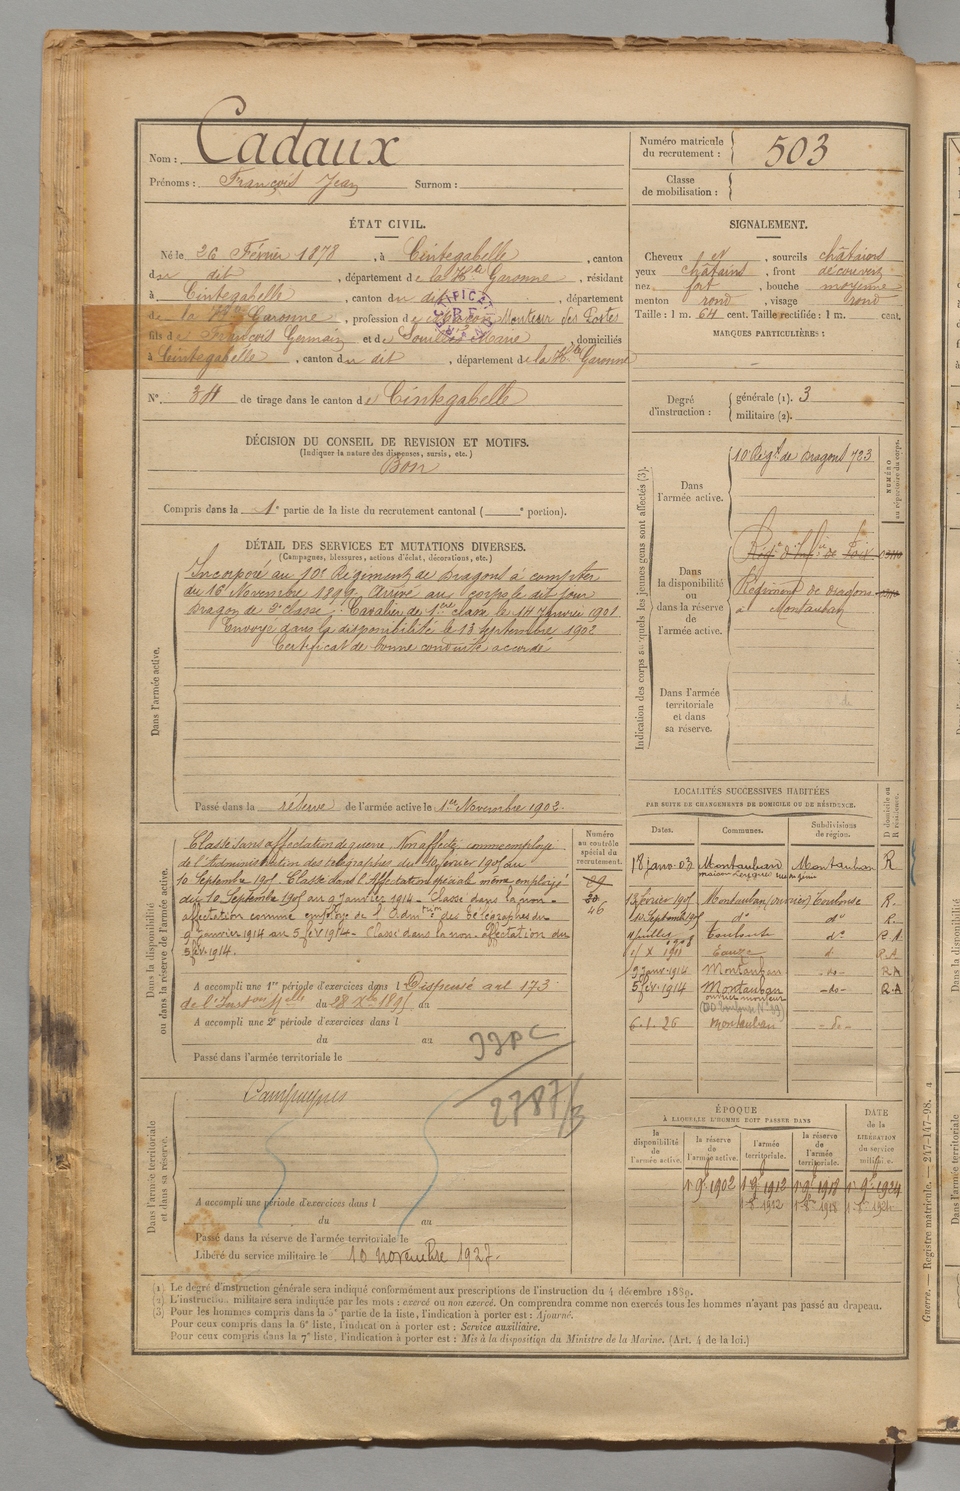 Nom : Cadaux
Prénoms : François Jean Surnom :
Numéro matricule du recrutement : 503
Classe de mobilisation :
ÉTAT CIVIL.
Né le 26 Février 1878, à Cintegabelle, canton
du dit, département de la Hte Garonne, résidant
à Cintegabelle, canton du dit, département
de la Hte Garonne, profession de Monteur des Postes
fils de François Germain et de Marie, domiciliés
à Cintegabelle, canton du dit, département de la Hte Garonne
N° 34 de tirage dans le canton de Cintegabelle
SIGNALEMENT.
Cheveux N, sourcils châtains
yeux châtains, front découvert
nez fort, bouche moyenne
menton rond, visage rond
Taille : 1 m. 64 cent. Taille rectifiée : 1 m. cent.
MARQUES PARTICULIÈRES :
Degré d'instruction : générale (1). 3
militaire (2).
DÉCISION DU CONSEIL DE REVISION ET MOTIFS.
(Indiquer la nature des dispenses, sursis, etc.)
Bon
Compris dans la 1e partie de la liste du recrutement cantonal ( e portion).
DÉTAIL DES SERVICES ET MUTATIONS DIVERSES.
(Campagnes, blessures, actions d'éclat, décorations, etc.)
Dans l'armée active.
Incorporé au 10e Régiment de Dragons à compter
du 16 Novembre 1899. Arrivé au corps le dit jour
Dragon de 2e classe. Cavalier de 1ere classe le 14 Janvier 1901
Envoyé dans la disponibilité le 13 Septembre 1902
Certificat de bonne conduite accordé
Passé dans la réserve de l'armée active le 1er Novembre 1902.
Indication des corps auxquels les jeunes gens sont affectés (3).
NUMÉRO au répertoire du corps.
Dans l'armée active.
10e Régt de Dragons 723
Dans la disponibilité ou dans la réserve de l'armée active.
Régt d'Infie de Foix
Régiment de dragons
à Montauban
Dans l'armée territoriale et dans sa réserve.
Dans la disponibilité ou dans la réserve de l'armée active.
Classé sans affectation de guerre. Non affecté comme employé
de l'Administration des télégraphes du février 1905 au
10 Septembre 1905. Classé dans l'affectation spéciale même employé
du 10 Septembre 1905 au 9 janvier 1914. Classé dans la non-
affectation comme employé de l'Admtion des télégraphes du
9 janvier 1914 au 5 fév 1914. Classé dans la non-affectation du
5 fév. 1914.
Numéro au contrôle spécial du recrutement.
46
A accompli une 1re période d'exercices dans l Dispensé art 173
de l'Inston Mlle du 28 Xbre 1895 au
A accompli une 2e période d'exercices dans l
du au
Passé dans l'armée territoriale le
2787/3
LOCALITÉS SUCCESSIVES HABITÉES
PAR SUITE DE CHANGEMENTS DE DOMICILE OU DE RÉSIDENCE.
Dates. Communes. Subdivisions de région. D domicile ou R résidence.
18 janv. 03 Montauban Montauban R
février 1905 Montauban Toulouse R.
10 Septembre 1905 do do R.
juillet 1908 Toulouse do R A
1 X 1911 Eauze d. R.A
9 janv. 1914 Montauban -do- R.A
5 fév. 1914 Montauban -do- R.A
ouvrier monteur
6.1.26 Montauban -do-
Dans l'armée territoriale et dans sa réserve.
Campagnes
A accompli une période d'exercices dans l
du au
Passé dans la réserve de l'armée territoriale le
Libéré du service militaire le 10 novembre 1927.
ÉPOQUE
À LAQUELLE L'HOMME DOIT PASSER DANS
DATE de la LIBÉRATION du service militaire.
la disponibilité de l'armée active. la réserve de l'armée active. l'armée territoriale. la réserve de l'armée territoriale.
1er 9bre 1902 1er 9bre 1912 1er 9bre 1918 1er 9bre 1924
(1) Le degré d'instruction générale sera indiqué conformément aux prescriptions de l'instruction du 4 décembre 1889.
(2) L'instruction militaire sera indiquée par les mots : exercé ou non exercé. On comprendra comme non exercés tous les hommes n'ayant pas passé au drapeau.
(3) Pour les hommes compris dans la 5e partie de la liste, l'indication à porter est : Ajourné.
Pour ceux compris dans la 6e liste, l'indication à porter est : Service auxiliaire.
Pour ceux compris dans la 7e liste, l'indication à porter est : Mis à la disposition du Ministre de la Marine. (Art. 4 de la loi.)
Guerre. — Registre matricule. — 247-147-98.